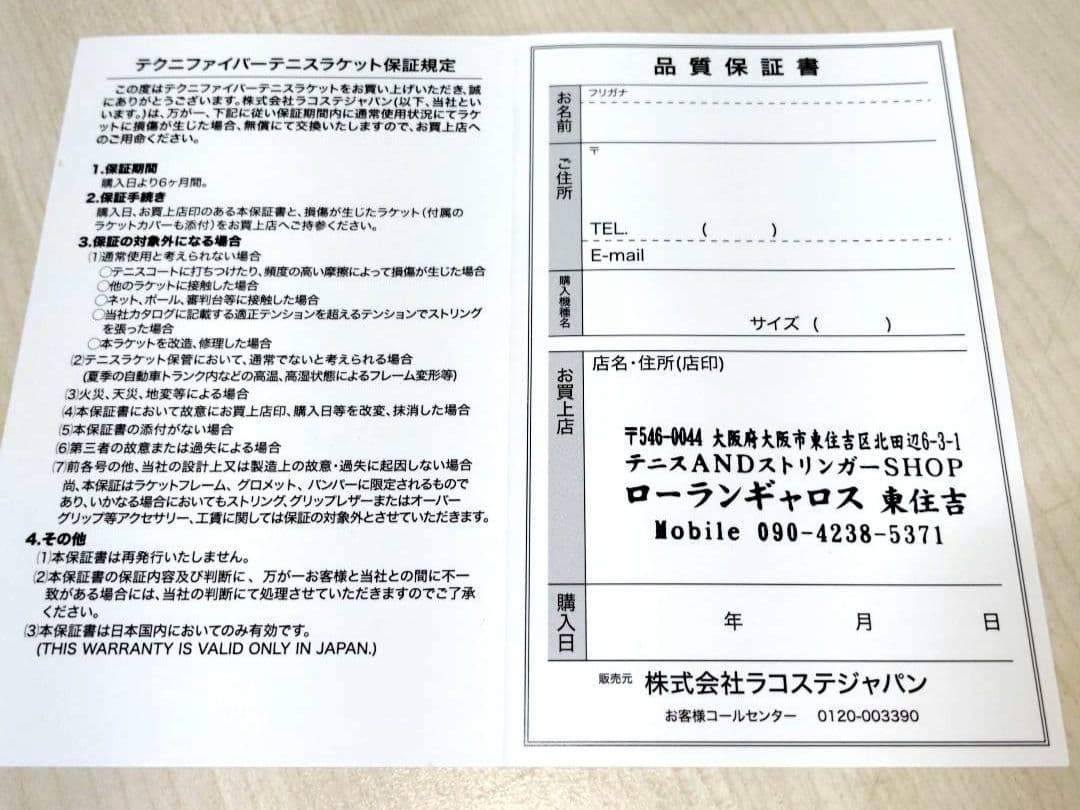 テクニファイバーテニスラケット保証規定
この度はテクニファイバーテニスラケットをお買い上げいただき、誠
にありがとうございます。株式会社ラコステジャパン(以下、当社とい
います。)は、万が一、下記に従い保証期間内に通常使用状況にてラケッ
トに損傷が生じた場合、無償にて交換いたしますので、お買上店へ
のご用命ください。
1.保証期間
購入日より6ヶ月間。
2.保証手続き
購入日、お買上店印のある本保証書と、損傷が生じたラケット(付属の
ラケットカバーも添付)をお買上店へご持参ください。
3.保証の対象外になる場合
(1)通常使用と考えられない場合
○テニスコートに打ちつけたり、頻度の高い摩擦によって損傷が生じた場合
○他のラケットに接触した場合
○ネット、ポール、審判台等に接触した場合
○当社カタログに記載する適正テンションを超えるテンションでストリング
を張った場合
○本ラケットを改造、修理した場合
(2)テニスラケット保管において、通常でないと考えられる場合
(夏季の自動車トランク内などの高温、高湿状態によるフレーム変形等)
(3)火災、天災、地変等による場合
(4)本保証書において故意にお買上店印、購入日等を改変、抹消した場合
(5)本保証書の添付がない場合
(6)第三者の故意または過失による場合
(7)前各号の他、当社の設計上又は製造上の故意・過失に起因しない場合
尚、本保証はラケットフレーム、グロメット、バンパーに限定されるもので
あり、いかなる場合においてもストリング、グリップレザーまたはオーバー
グリップ等アクセサリー、工賃に関しては保証の対象外とさせていただきます。
4.その他
(1)本保証書は再発行いたしません。
(2)本保証書の保証内容及び判断に、万が一お客様と当社との間に不一
致がある場合には、当社の判断にて処理させていただきますのでご了承
ください。
(3)本保証書は日本国内においてのみ有効です。
(THIS WARRANTY IS VALID ONLY IN JAPAN.)
品質保証書
お名前
フリガナ
ご住所
〒
TEL. ( )
E-mail
購入機種名
サイズ ( )
お買上店
店名・住所(店印)
〒546-0044 大阪府大阪市東住吉区北田辺6-3-1
テニスANDストリンガーSHOP
ローランギャロス 東住吉
Mobile 090-4238-5371
購入日
年 月 日
販売元 株式会社ラコステジャパン
お客様コールセンター 0120-003390